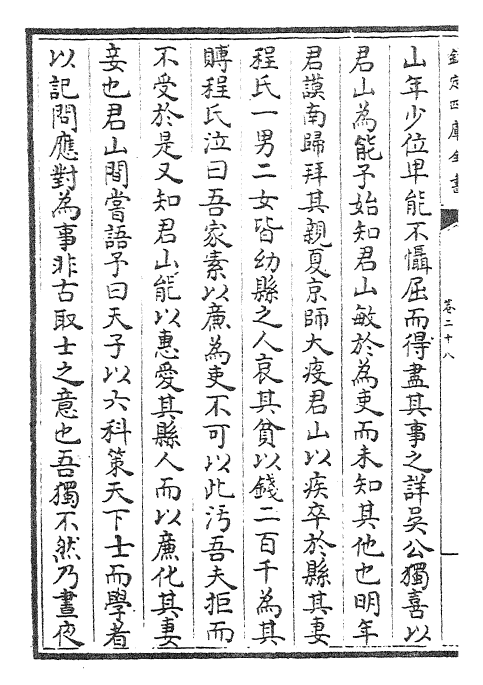 欽定四庫全書
卷二十八
山年少位卑能不懾屈而得盡其事之詳吳公獨喜以
君山為能予始知君山敏於為吏而未知其他也明年
君謨南歸拜其親夏京師大疫君山以疾卒於縣其妻
程氏一男二女皆幼縣之人哀其貧以錢二百千為其
賻程氏泣曰吾家素以廉為吏不可以此汚吾夫拒而
不受於是又知君山能以惠愛其縣人而以廉化其妻
妾也君山間嘗語予曰天子以六科策天下士而學者
以記問應對為事非古取士之意也吾獨不然乃晝夜